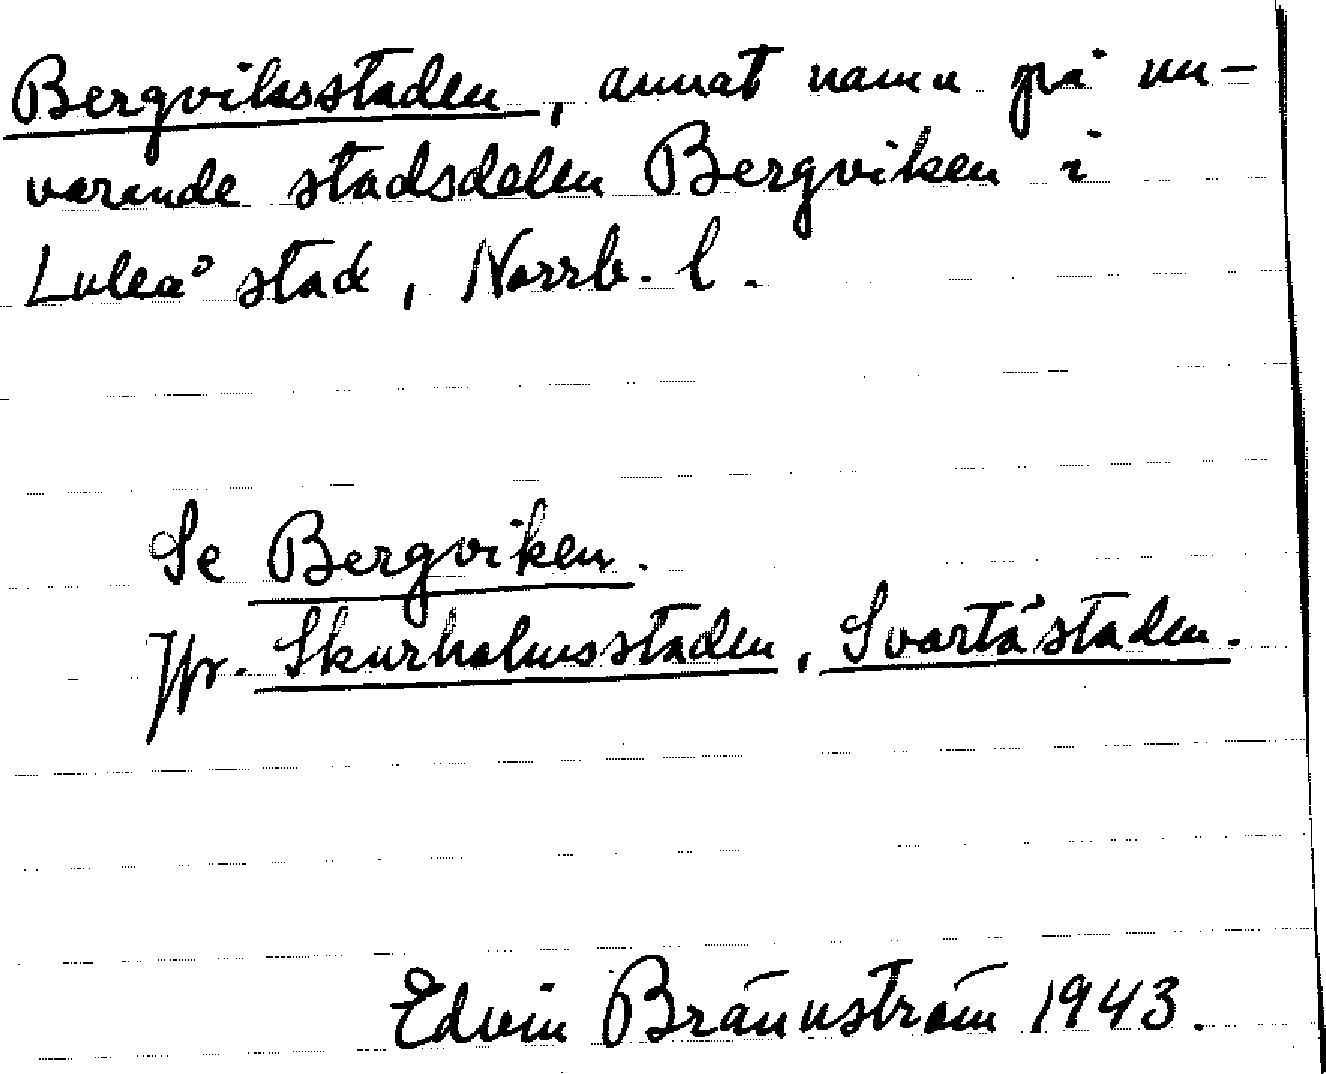 Bergviksstaden, annat namn på nu-
varande stadsdelen Bergviken i
Luleå stad, Norrb. l.
Se Bergviken.
Jfr. Skurholmsstaden, Svartåstaden.
Edvin Brännström 1943.